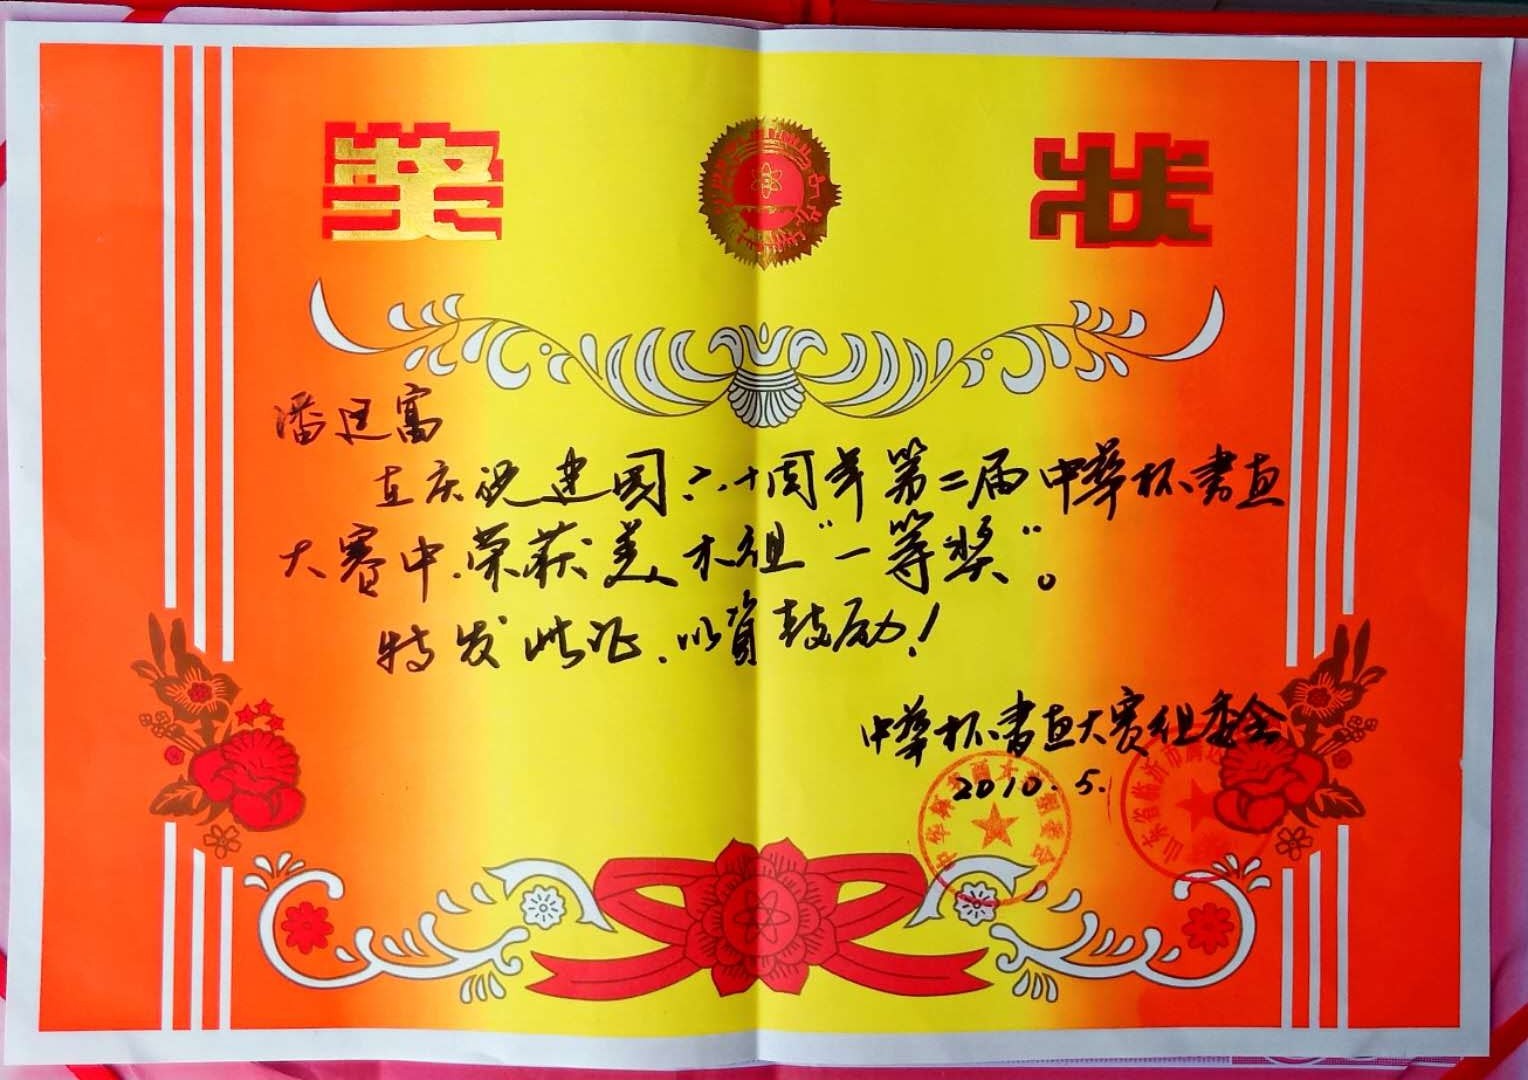 奖 状
潘廷富
在庆祝建国六十周年第二届中华杯书画
大赛中.荣获美术组“一等奖”。
特发此证.以资鼓励!
中华杯书画大赛组委会
2010.5.